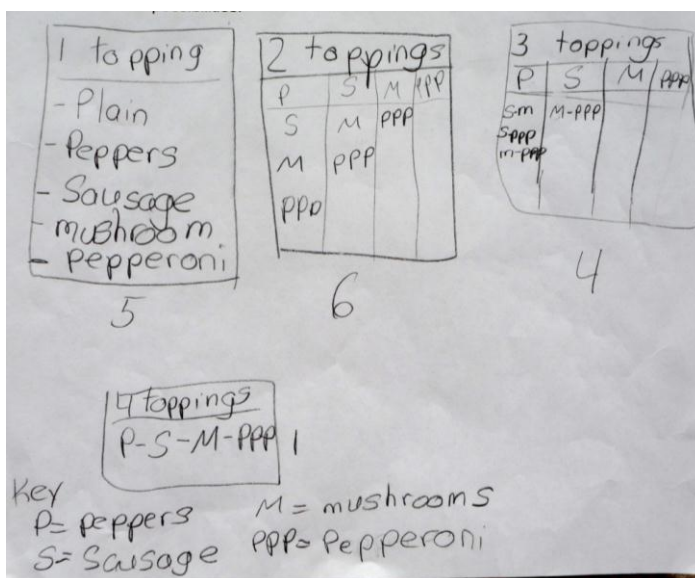 1 topping
- Plain
- Peppers
- Sausage
- mushroom
- pepperoni
5
2 toppings
P S M PPP
S M PPP
M PPP
PPP
6
3 toppings
P S M PPP
S-m M-PPP
S-PPP
m-PPP
4
4 toppings
P-S-M-PPP 1
Key
P= peppers
S= Sausage
M= mushrooms
PPP= Pepperoni